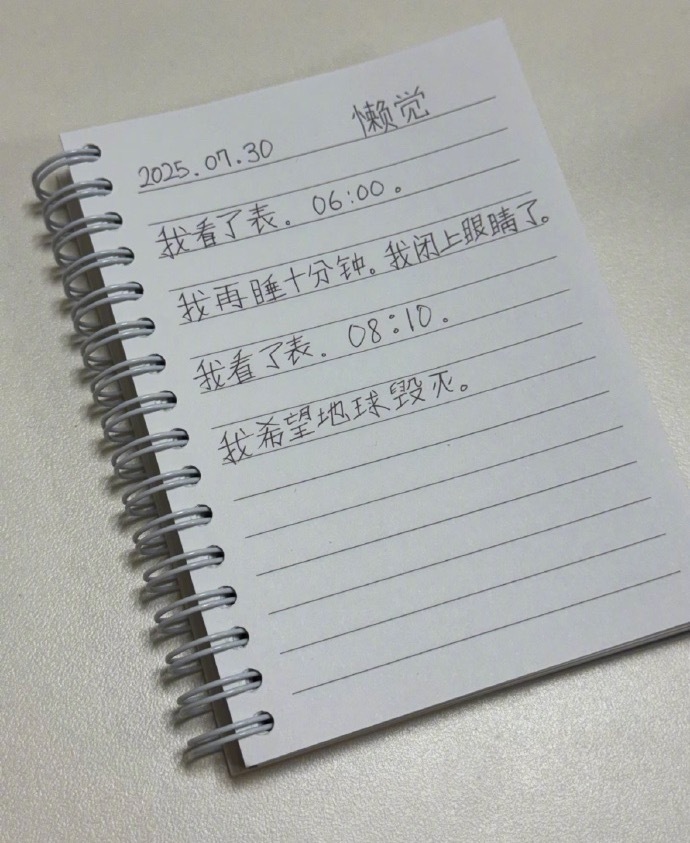 2025.07.30 懒觉
我看了表。06:00。
我再睡十分钟。我闭上眼睛了。
我看了表。08:10.
我希望地球毁灭。